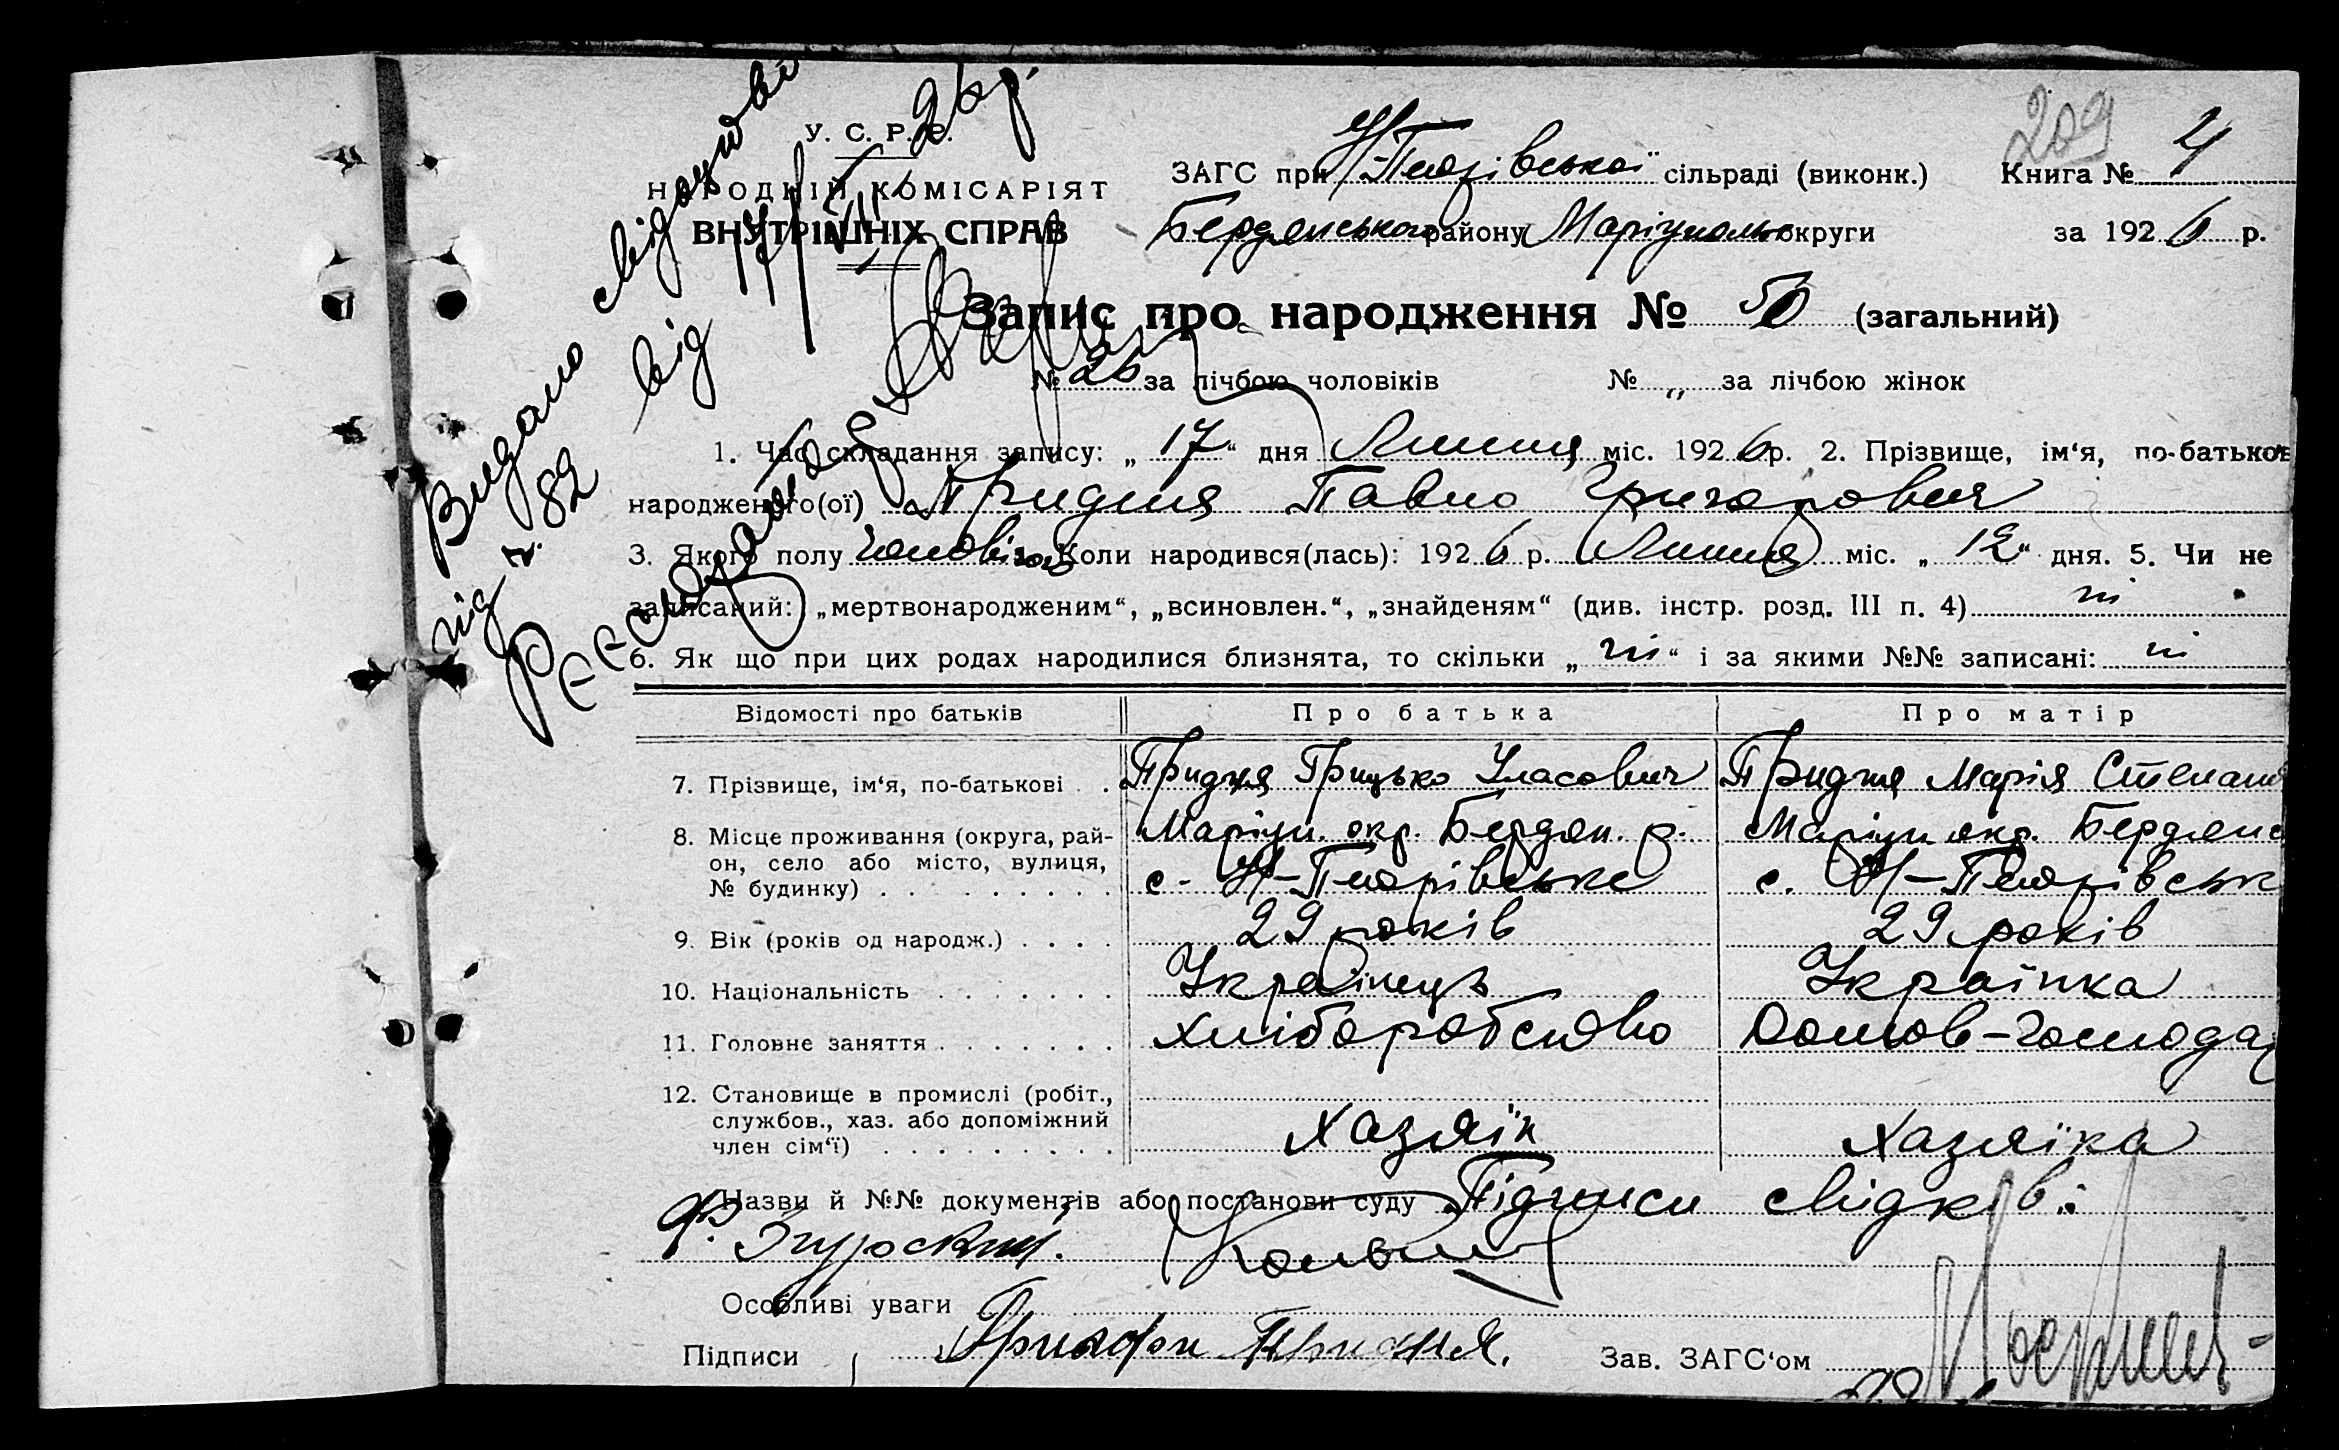 209
У. С. Р. Р.
НАРОДНІЙ КОМІСАРІЯТ
ВНУТРІШНІХ СПРАВ
Видано свідоцтво
під ч. 82 від
26 р.
ЗАГС при сільраді (виконк.) Книга № 4
Бердянського району Маріупольс округи за 1926 р.
Запис про народження № 50 (загальний)
№ 26 за лічбою чоловіків № „ за лічбою жінок
1. Час складання запису: „17“ дня Липня міс. 1926 р. 2. Прізвище, ім‘я, по-батьков
народженого(ої) Придня Павло Григорович
3. Якого полу чоловічого Коли народився(лась): 1926 р. Липня міс. „12“ дня. 5. Чи не
записаний: „мертвонародженим“, „всиновлен.“, „знайденям“ (див. інстр. розд. III п. 4) ні
6. Як що при цих родах народилися близнята, то скільки „ні“ і за якими №№ записані: ні
Відомості про батьків Про батька Про матір
7. Прізвище, ім‘я, по-батькові Придня Грицько Уласович Придня Марія Степані
8. Місце проживання (округа, рай-
он, село або місто, вулиця,
№ будинку)
Маріуп. окр. Бердян. р. Маріуп окр. Бердянс
9. Вік (років од народж.) 29 років 29 років
10. Національність Українець Українка
11. Головне заняття Хліборобство Домов-господар
12. Становище в промислі (робіт.,
службов., хаз. або допоміжний
член сім‘ї)
Хазяїн Хазяїка
Назви й №№ документів або постанови суду Підписи свідків:
Особливі уваги
Підписи Придня. Зав. ЗАГС‘ом